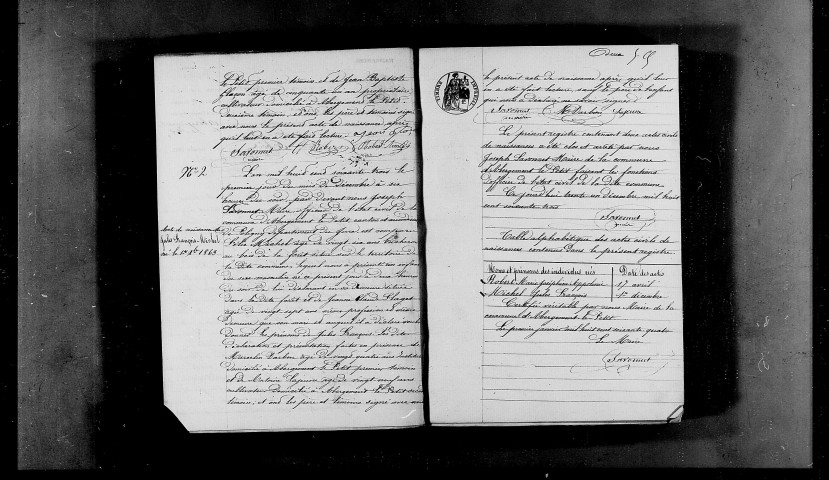 le Petit premier témoin et de Jean Baptiste
âgé de cinquante un an propriétaire
cultivateur domicilié à Abergement le Petit
deuxième témoin, et ont les père et témoins signé
avec nous le présent acte de naissance après
qu'il leur en a été fait lecture.
Savonnet Robert
maire
N° 2
Acte de naissance de
Jules François Michel
né le 1er Xbre 1863
L'an mil huit cent soixante trois le
premier jour du mois de décembre à six
heures du soir, pard devant nous Joseph
Savonnet Maire officier de l'état civil de la
commune d'Abergement le Petit canton
de Poligny département du Jura est comparu
Michel âgé de vingt six ans bucheron
au bois de la forêt située sur le territoire de
la dite commune, lequel nous a présenté un enfant
de sexe masculin né ce présent jour à deux heures
du soir de lui déclarant en sa demeure située
dans la dite forêt et de Jeanne Claude
âgée de vingt sept ans même profession et même
demeure que son mari et auquel il a déclaré vouloir
donner les prénoms de Jules François. Les dites
déclaration et présentation faites en présence de
Marcelin âgé de vingt quatre ans
domicilié à Abergement le Petit premier témoin
et de Antoine âgé de vingt neuf ans
cultivateur domicilié à Abergement le Petit second
témoin; et ont les père et témoins signé avec nous
Deux
le présent acte de naissance après qu'il leur
en a été fait lecture, sauf le père
qui a déclaré ne savoir signer
Savonnet
maire
Le présent registre contenant deux actes civils
de naissances a été clos et arrêté par nous
Joseph Savonnet Maire de la commune
d'Abergement le Petit faisant les fonctions
d'officier de l'état civil de la dite commune
Ce jourd'hui trente un décembre mil huit
cent soixante trois
Savonnet
maire
Table alphabétique des actes civils de
naissances contenus dans le présent registre
Noms et prénoms des individus nés Date des actes
Robert Marie Joséphine Appoline 17 avril
Michel Jules François 1er décembre
Certifié véritable par nous Maire de la
commune d'Abergement le Petit
Le premier janvier mil huit cent soixante quatre
Le Maire
Savonnet